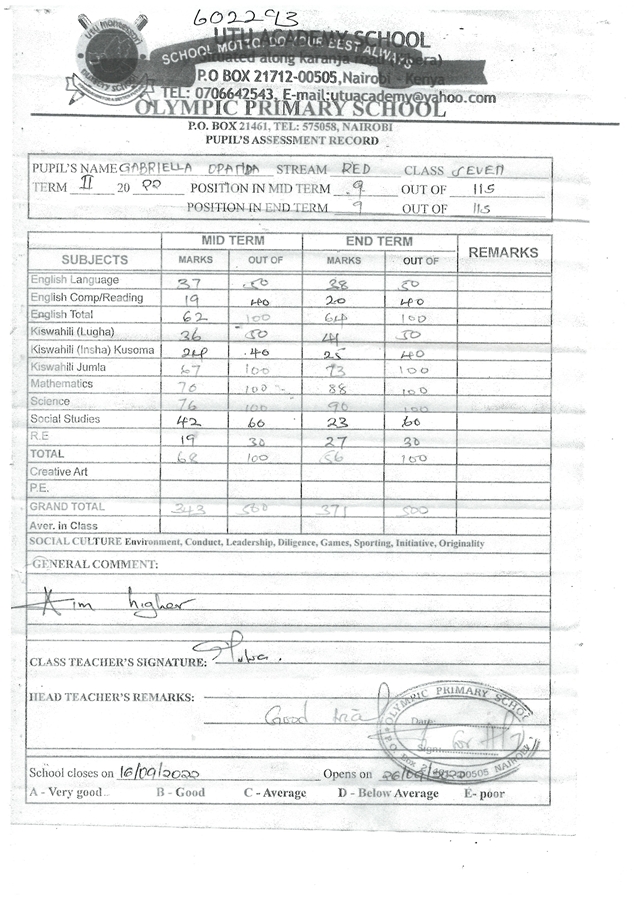 602293
UTU ACADEMY SCHOOL
SCHOOL MOTTO: DO YOUR BEST ALWAYS
(Situated along karanja road
P.O BOX 21712-00505, Nairobi - Kenya
TEL: 0706642543, E-mail:utuacademy@yahoo.com
OLYMPIC PRIMARY SCHOOL
P.O. BOX 21461, TEL: 575058, NAIROBI
PUPIL'S ASSESSMENT RECORD
PUPIL'S NAME GABRIELLA OPANDA STREAM RED CLASS SEVEN
TERM II 20 20 POSITION IN MID TERM 9 OUT OF 115
POSITION IN END TERM 9 OUT OF 115
MID TERM END TERM REMARKS
SUBJECTS MARKS OUT OF MARKS OUT OF
English Language 37 50 38 50
English Comp/Reading 19 40 20 40
English Total 62 100 64 100
Kiswahili (Lugha) 36 50 44 50
Kiswahili (Insha) Kusoma 24 40 25 40
Kiswahili Jumla 67 100 73 100
Mathematics 70 100 88 100
Science 76 100 90 100
Social Studies 42 60 23 60
R.E 19 30 27 30
TOTAL 68 100 56 100
Creative Art
P.E.
GRAND TOTAL 343 500 371 500
Aver. in Class
SOCIAL CULTURE Environment, Conduct, Leadership, Diligence, Games, Sporting, Initiative, Originality
GENERAL COMMENT:
Aim higher
CLASS TEACHER'S SIGNATURE:
HEAD TEACHER'S REMARKS:
Good
OLYMPIC PRIMARY SCHOOL
Date:
Sign:
00505 NAIROBI
School closes on 16/09/2020 Opens on 26/09/2020
A - Very good B - Good C - Average D - Below Average E- poor